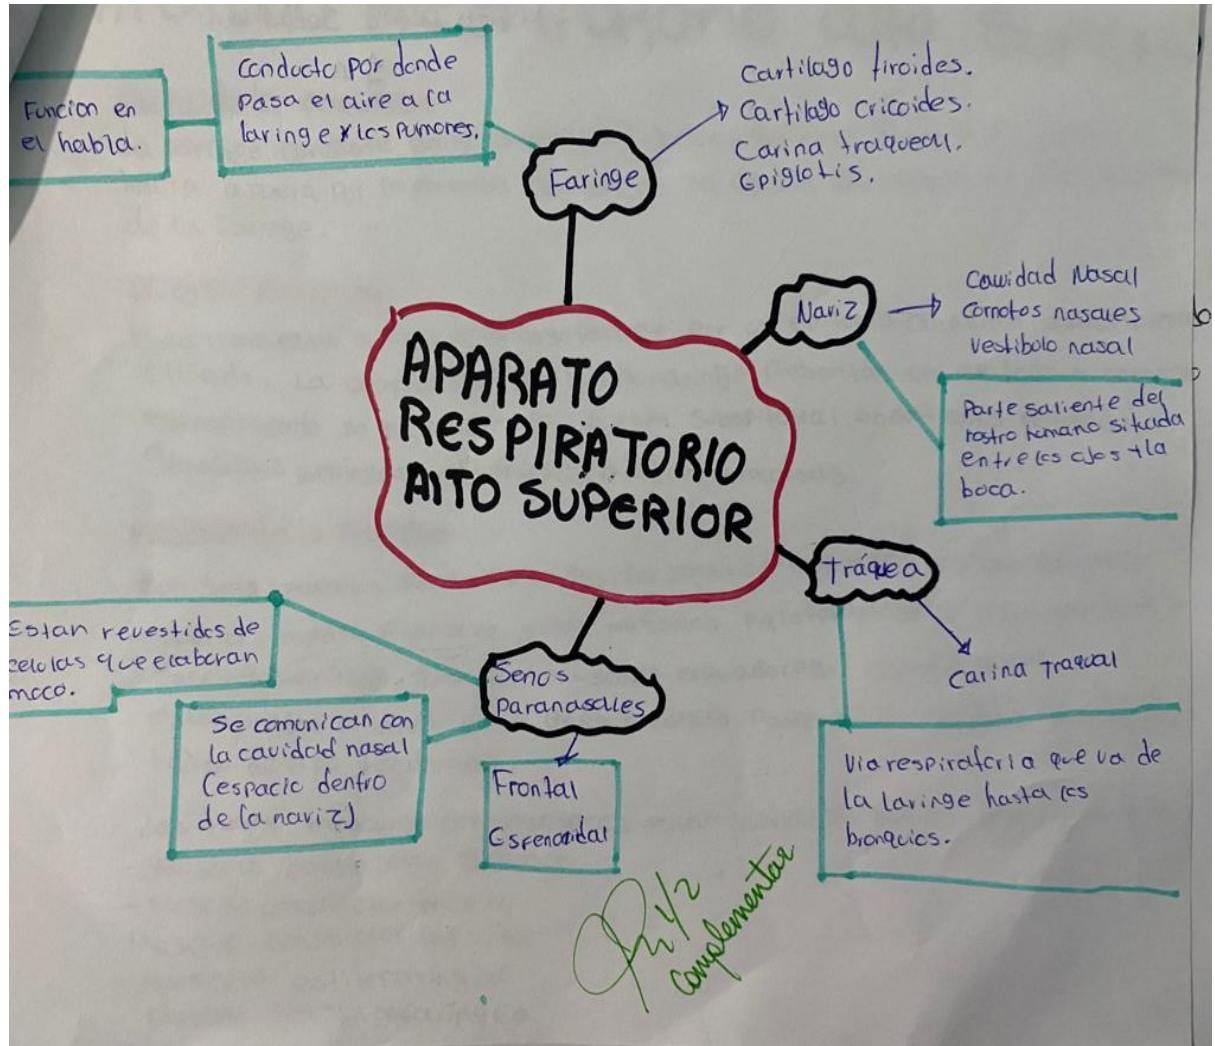 Funcion en
el habla.
Conducto por donde
pasa el aire a la
laringe y los pumones.
Faringe
Cartilago tiroides.
Cartilago cricoides.
Carina traqueal.
Epiglotis.
Nariz
Cavidad Nasal
Cornotos nasales
vestibolo nasal
Parte saliente del
rostro humano situada
entre los ojos y la
boca.
APARATO
RESPIRATORIO
AITO SUPERIOR
Tráquea
Carina Traqual
Via respiratoria que va de
la laringe hasta los
bronquios.
Estan revestidos de
celolas que elaboran
moco.
Senos
Paranasales
Se comunican con
la cavidad nasal
(espacio dentro
de la nariz)
Frontal
Esfenoidal
1/2
complementar